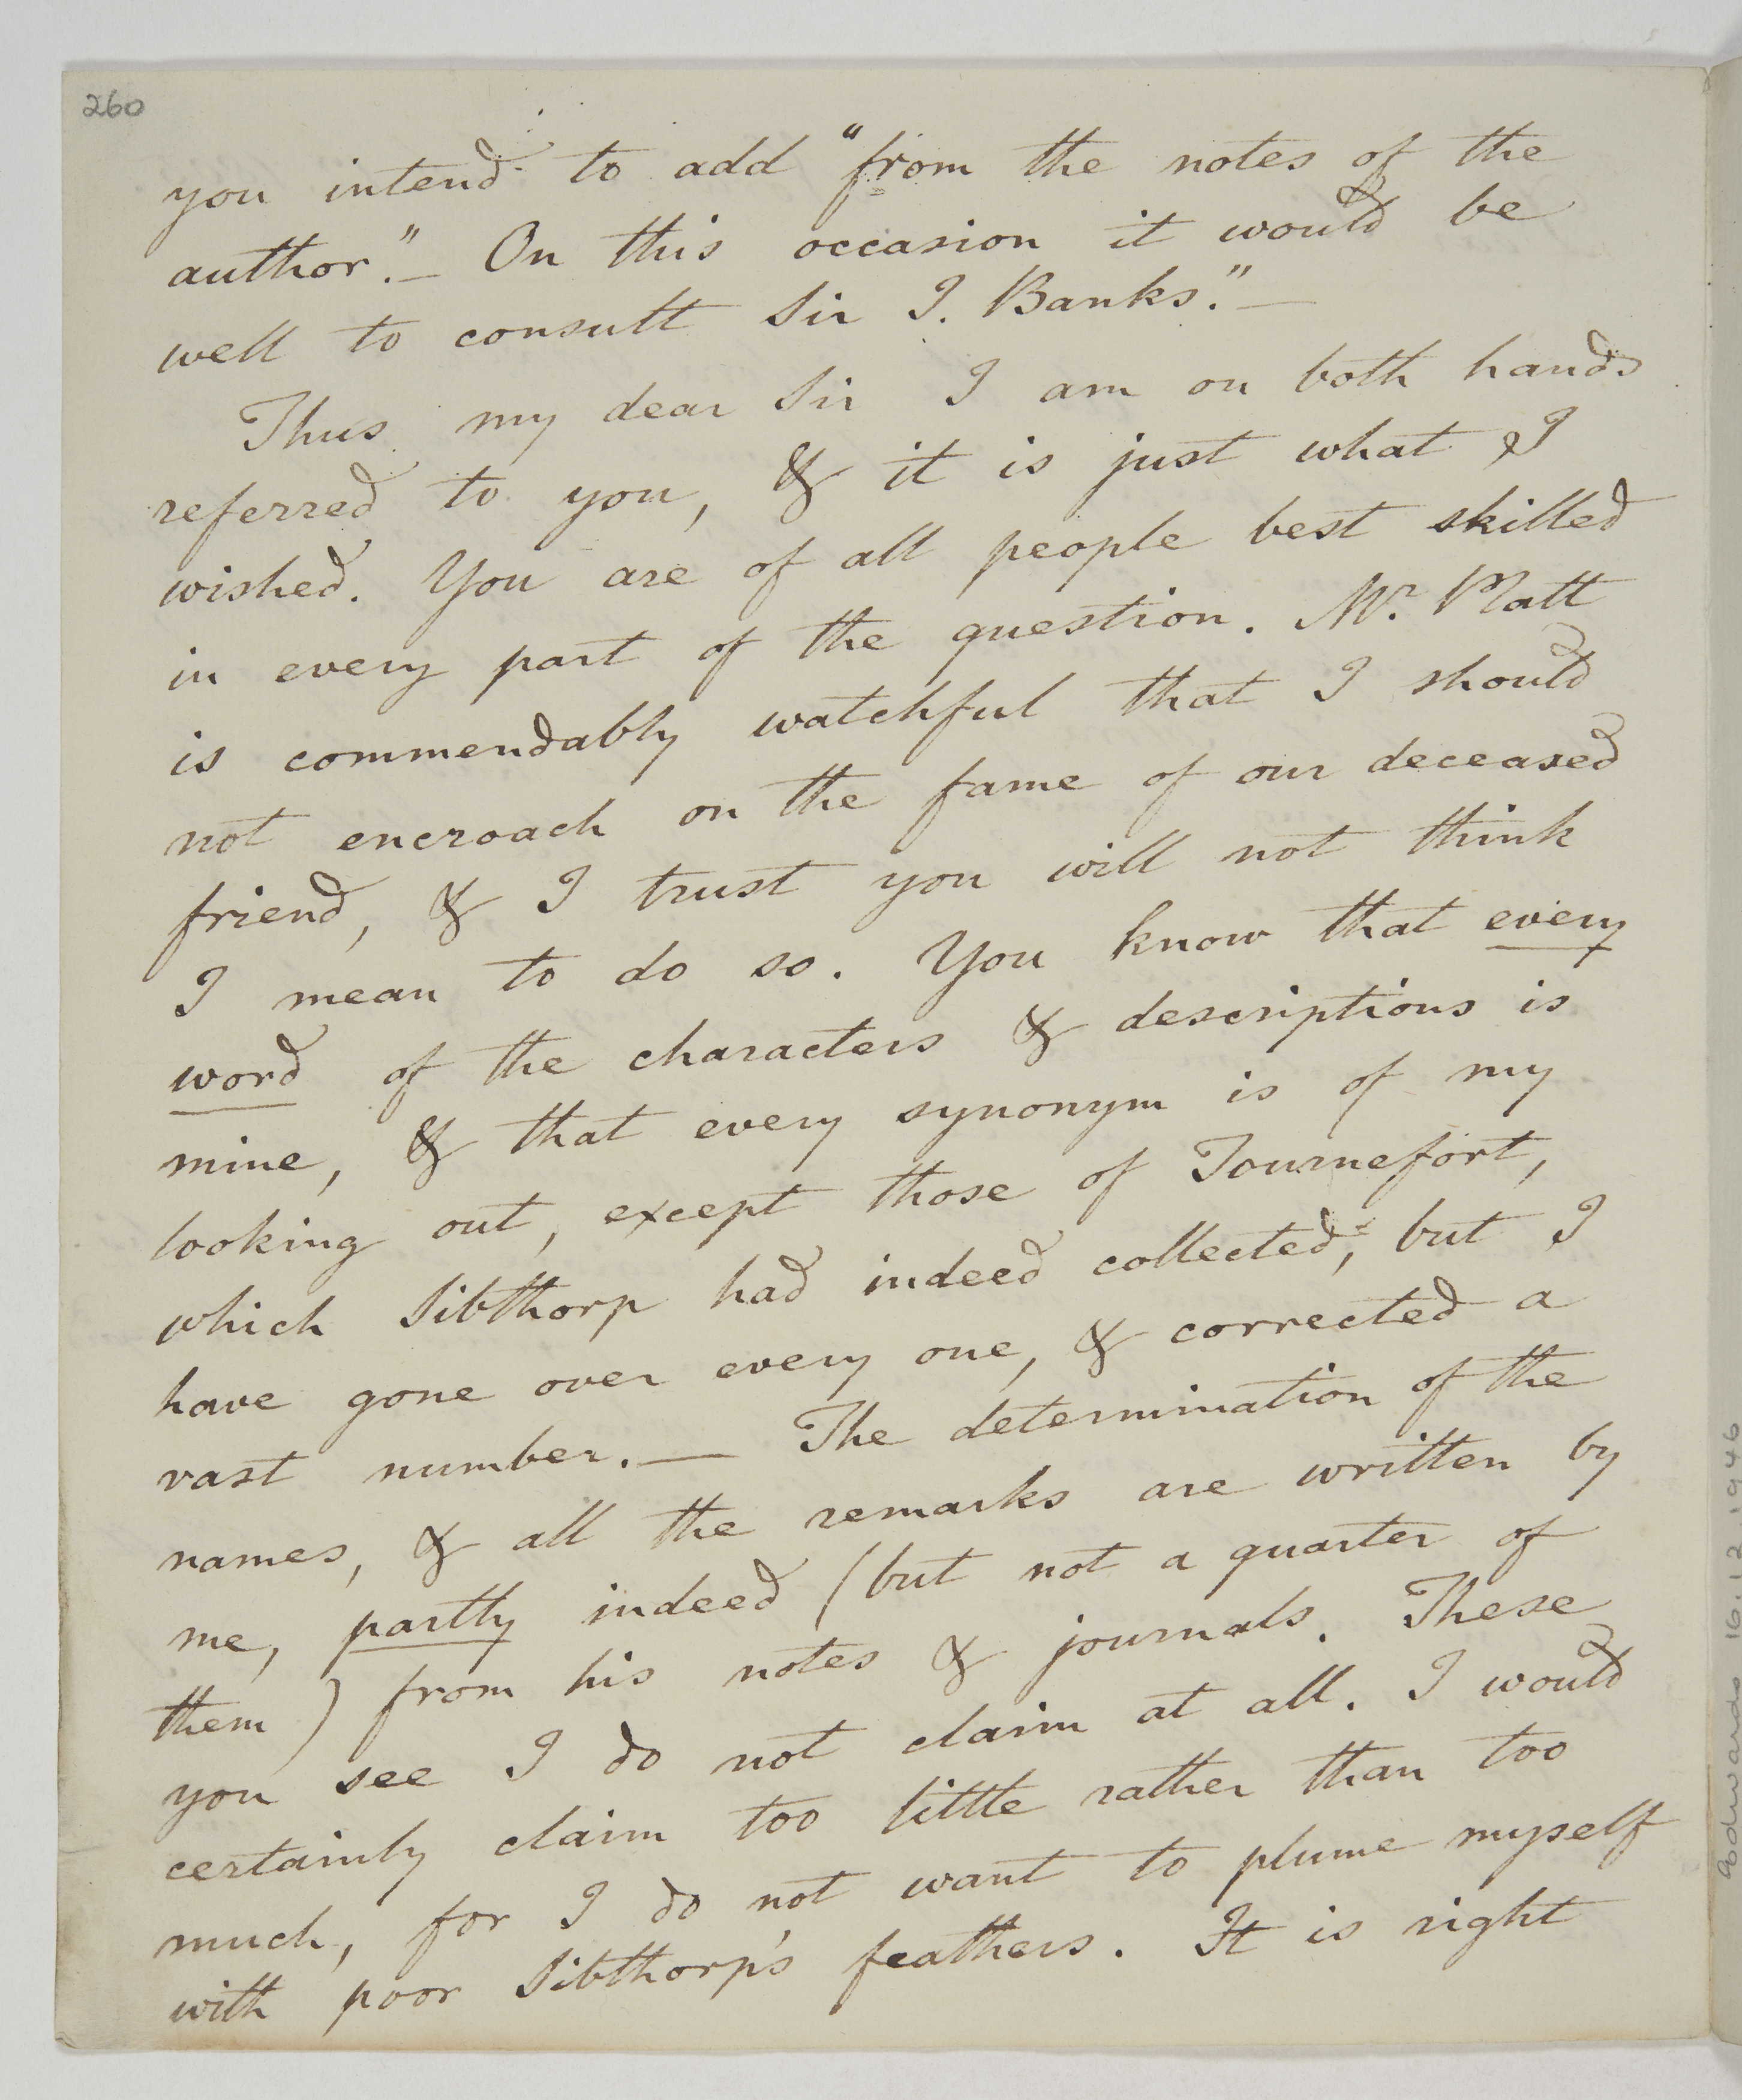 260
you intend to add "from the notes of the
author."— On this occasion it would be
well to consult Sir J. Banks."—
Thus my dear Sir I am on both hands
referred to you, & it is just what I
wished. You are of all people best skilled
in every part of the question. Mr. Platt
is commendably watchful that I should
not encroach on the fame of our deceased
friend, & I trust you will not think
I mean to do so. You know that every
word of the characters & descriptions is
mine, & that every synonym is of my
looking out, except those of Tournefort,
which Sibthorp had indeed collected, but I
have gone over every one, & corrected a
vast number.— The determination of the
names, & all the remarks are written by
me, partly indeed (but not a quarter of
them) from his notes & journals. These
you see I do not claim at all. I would
certainly claim too little rather than too
much, for I do not want to plume myself
with poor Sibthorp's feathers. It is right
Edwards 16.12.1946